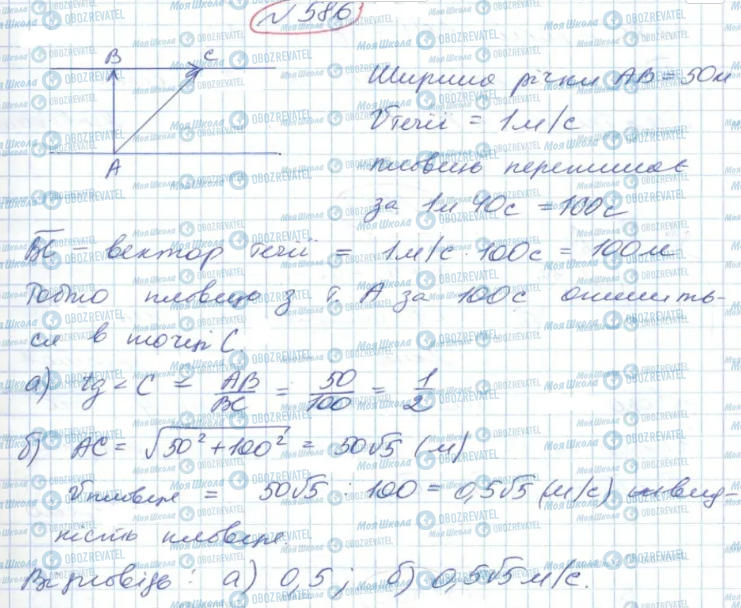 № 586
B C
Ширина річки AB = 50м
Vтечії = 1м/с
A
пловець перепливає
за 1м 40с = 100с
BC – вектор течії = 1м/с · 100с = 100м
Тобто пловець з т. A за 100с опинить-
ся в точці C.
а) tg < C = AB/BC = 50/100 = 1/2
б) AC = √50² + 100² = 50√5 (м)
Vпловця = 50√5 : 100 = 0,5√5 (м/с) швид-
кість пловця.
Відповідь: а) 0,5; б) 0,5√5 м/с.
Моя Школа OBOZREVATEL